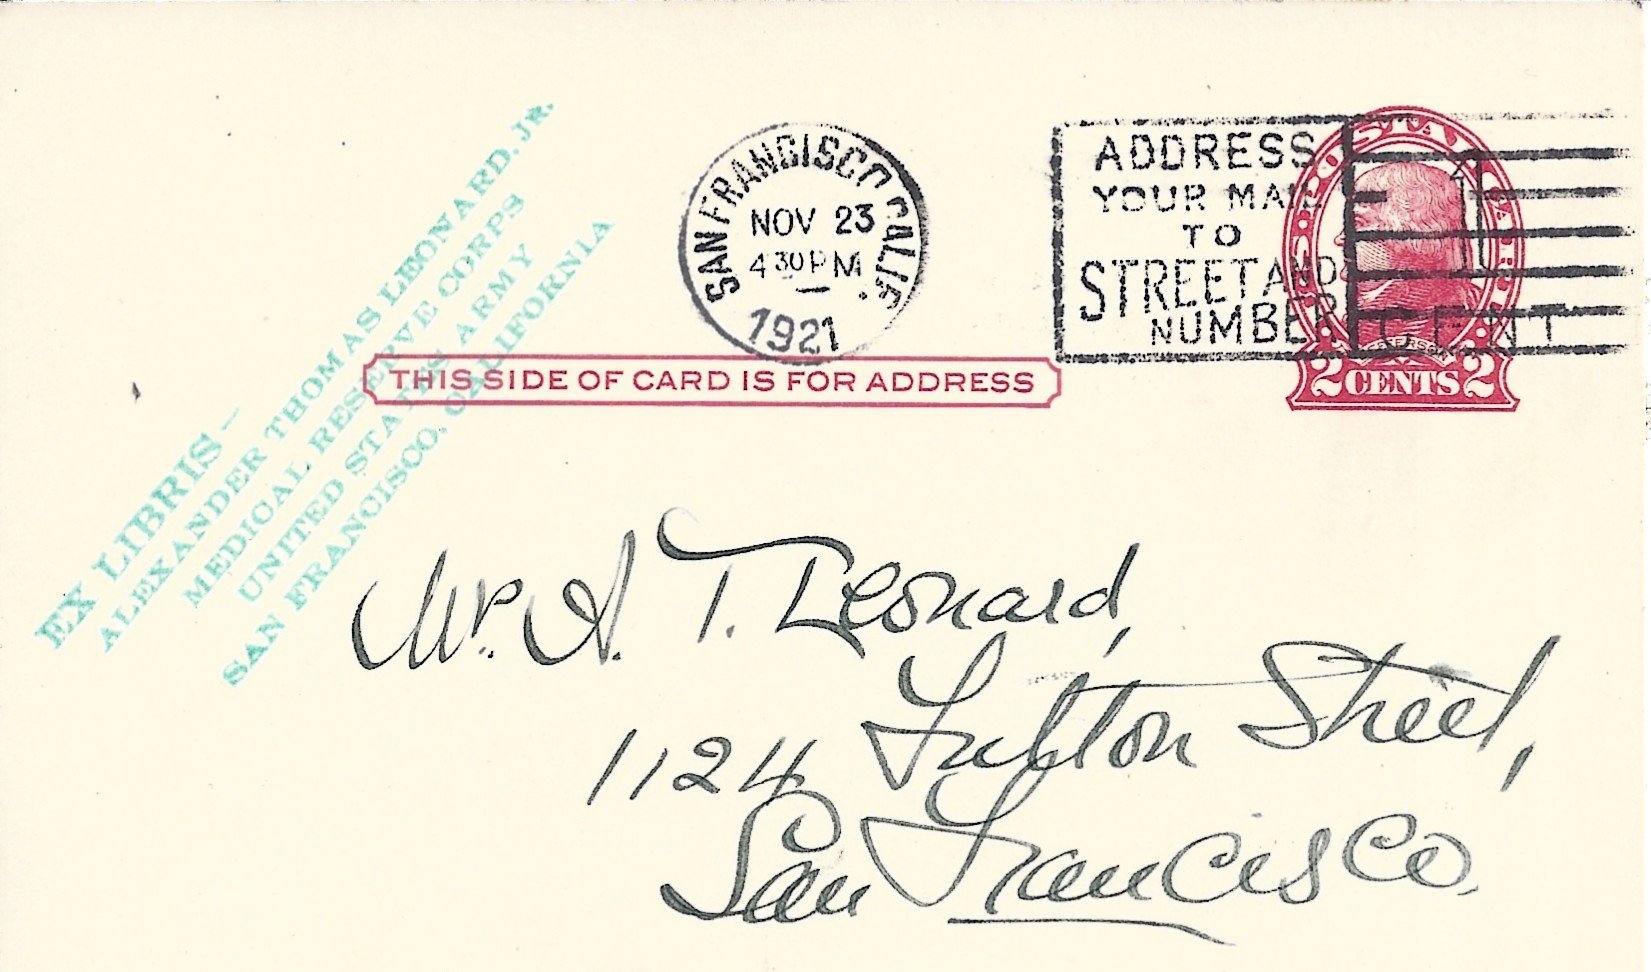 EX LIBRIS —
ALEXANDER THOMAS LEONARD, JR.
MEDICAL RESERVE CORPS
UNITED STATES ARMY
SAN FRANCISCO, CALIFORNIA
SAN FRANCISCO, CALIF.
NOV 23
4 30 PM
1921
ADDRESS
YOUR MAIL
TO
STREET AND
NUMBER
1 CENT
U·S·POSTAGE
JEFFERSON
2 CENTS 2
THIS SIDE OF CARD IS FOR ADDRESS
Mr. A. T. Leonard,
1124 Fulton Street,
San Francisco.